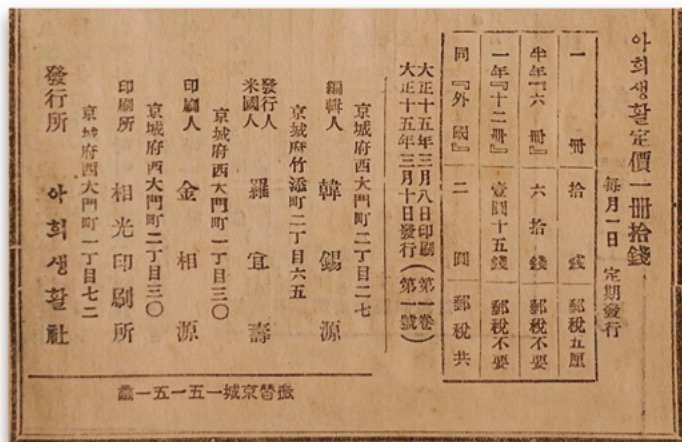 아희생활定價一冊拾錢
每月一日 定期發行
一冊 拾錢 郵稅五厘
半年『六冊』 六拾錢 郵稅不要
一年『十二冊』 壹圓十五錢 郵稅不要
同『外國』 二圓 郵稅共
大正十五年三月八日印刷(第一卷)
大正十五年三月十日發行(第一號)
京城府西大門町二丁目二七
編輯人 韓錫源
京城府竹添町二丁目六五
發行人
米國人 羅宜壽
京城府西大門町一丁目三〇
印刷人 金相源
京城府西大門町二丁目三〇
印刷所 相光印刷所
京城府西大門町一丁目七二
發行所 아희생활社
振替京城一五一五一番